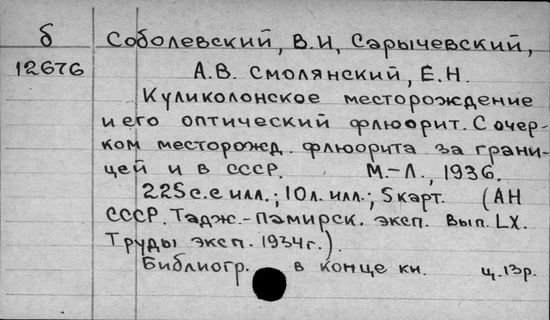 б
Соболевский, В.И, Сарычевский,
12676
А.В. Смолянский, Е.Н.
Куликолонское месторождение
и его оптический флюорит. С очер-
ком месторожд. флюорита за грани-
цей и в СССР. М.-Л., 1936.
225с. с илл.; 10л. илл.; 5карт. (АН
СССР. Тадж.-Памирск. эксп. Вып. LX.
Труды эксп. 1934г.).
Библиогр. в конце кн. ц.13р.